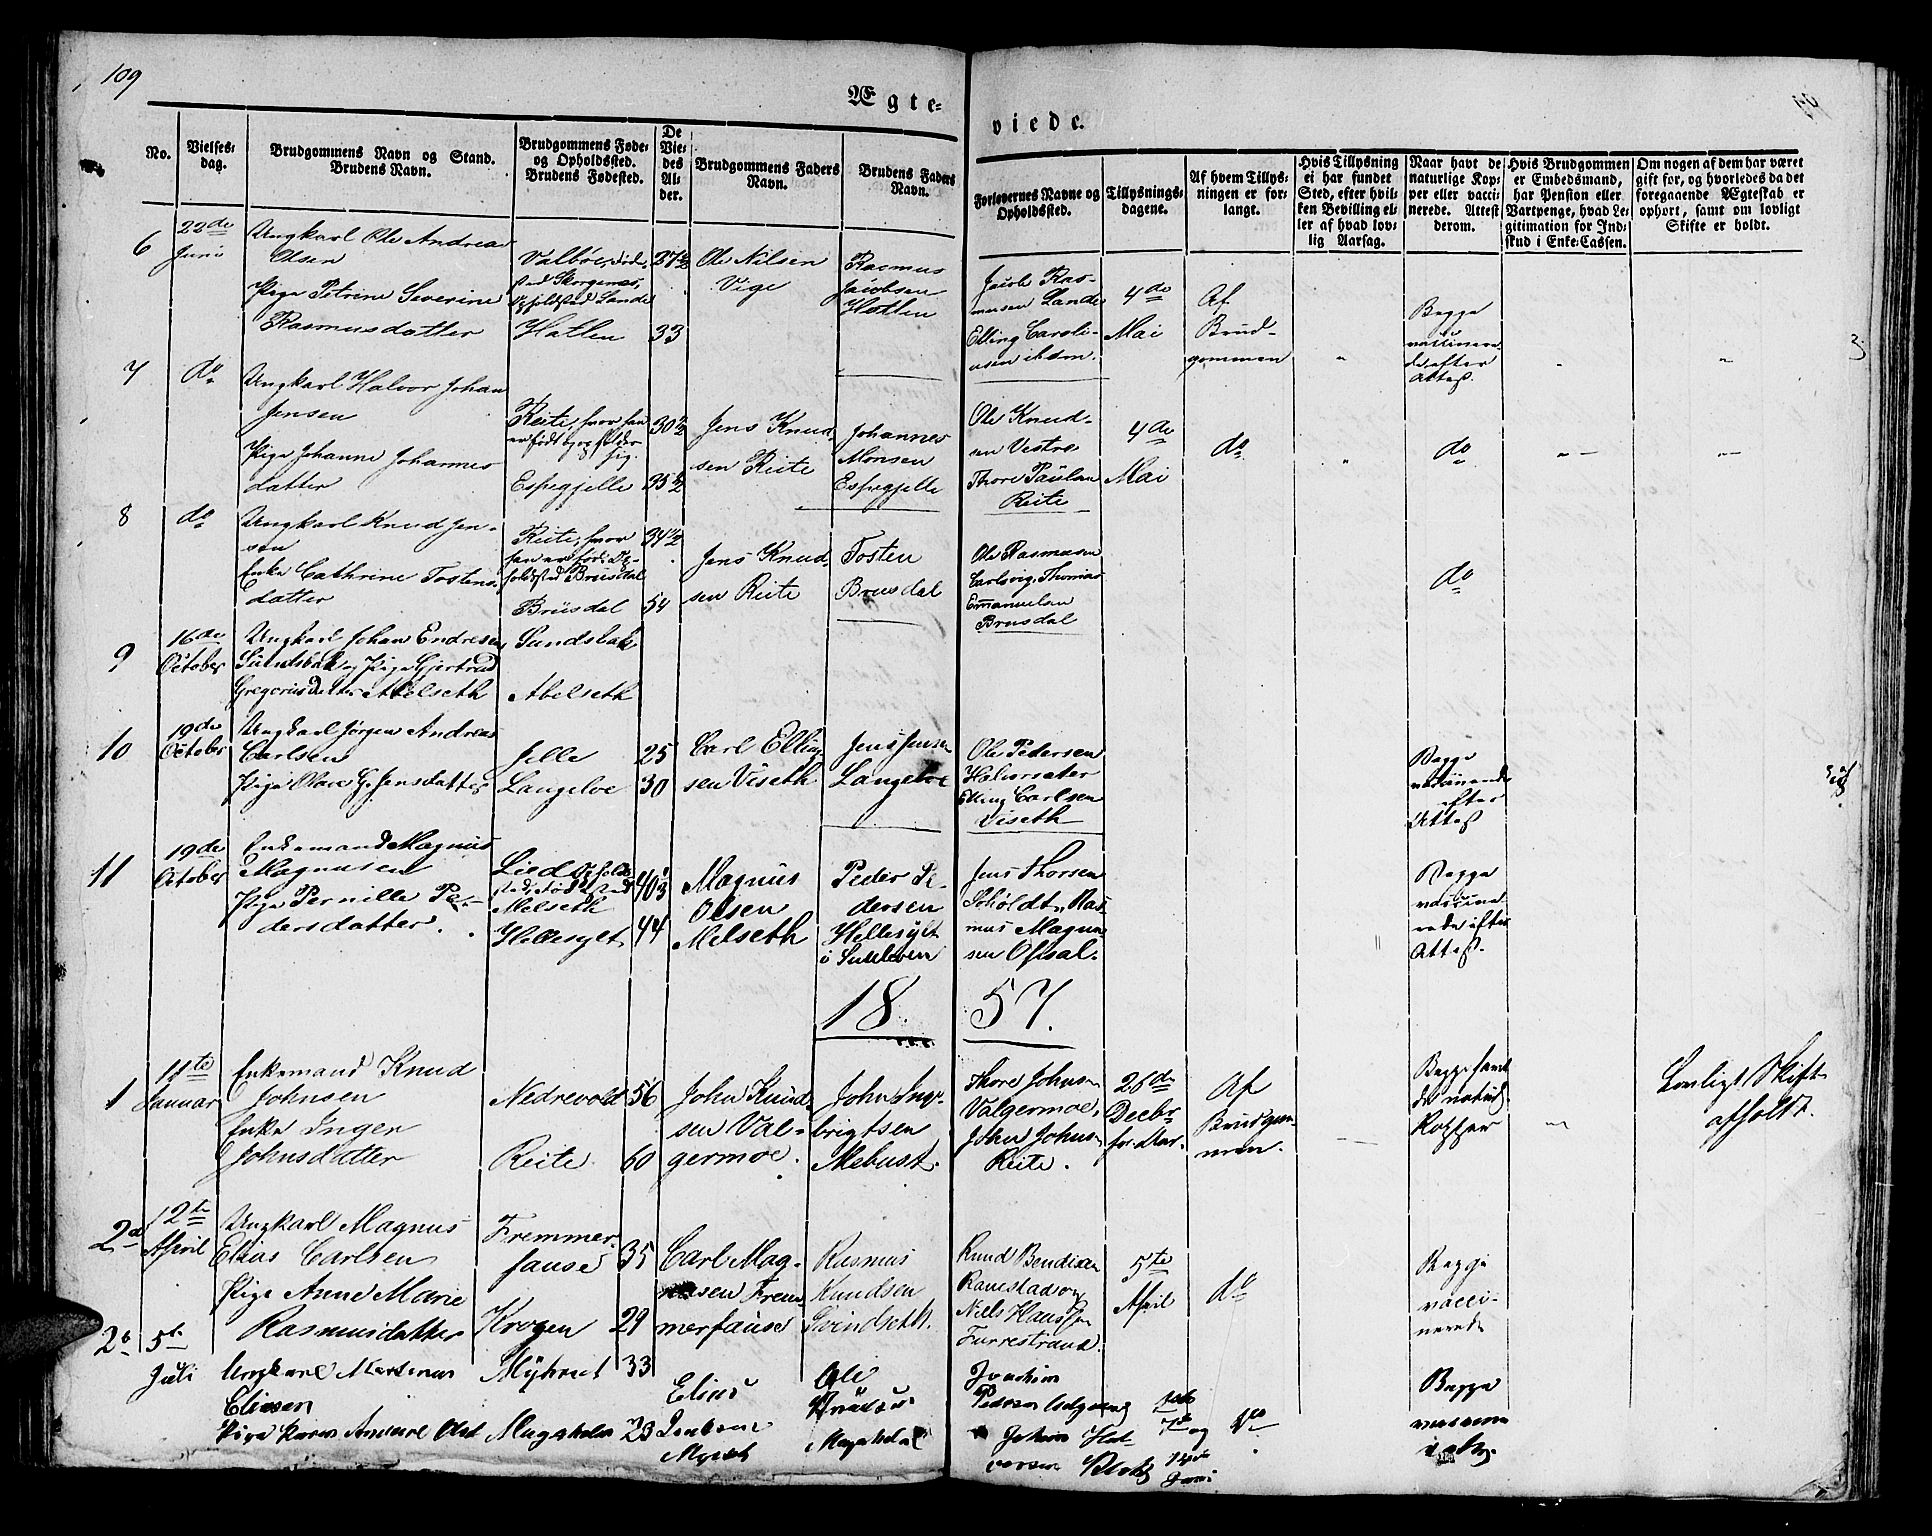 109
Ægte-
viede.
No.
Vielses-
dag.
Brudgommens Navn og Stand.
Brudens Navn.
Brudgommens Føde-
og Opholdssted.
Brudens Fødested.
De
Vie-
des
Al-
der.
Brudgommens Faders
Navn.
Brudens Faders
Navn.
Forlovernes Navne og
Opholdssted.
Tillysnings-
dagene.
Af hvem Tillys-
ningen er for-
langt.
Hvis Tillysning
ei har fundet
Sted, efter hvil-
ken Bevilling el-
ler af hvad lov-
lig Aarsag.
Naar havt de
naturlige Kop-
per eller vacci-
nerede. Attest
derom.
Hvis Brudgommen
er Embedsmand,
har Pension eller
Vartpenge, hvad Le-
gitimation for Ind-
skud i Enke-Cassen.
Om nogen af dem har været
gift for, og hvorledes da det
foregaaende Ægteskab er
ophørt, samt om lovligt
Skifte er holdt.
6
22de
Juni
Ungkarl Ole Andreas
Olsen
Pige Petrine Severine
Rasmusdatter
Hatlen
27½
33
Ole Nilsen
Vige
Rasmus
Jacobsen
Hatlen
Jacob Ras-
musen Lande
Elling Caroli-
usen ibdm.
4de
Mai
Af
Brud-
gommen
Begge
vaccinere-
de efter
Attest.
7
do
Ungkarl Halvor Johan
Jensen
Pige Johanne Johannes
datter
Reite, hvor han
er født og op-holder
sig.
Espegjelle
30½
35½
Jens Knud-
sen Reite
Johannes
Monsen
Espegjelle
Ole Knud-
sen Vestre
Thore Paulsen
Reite
4de
Mai
do
do
8
do
Ungkarl Knud Jen-
sen
Enke Cathrine Tostens-
datter
Reite, hvor
han er født. Op-
holdsted Brusdal
Brusdal
34½
54
Jens Knud-
sen Reite
Tosten
Brusdal
Ole Rasmusen
Carlsvig, Thomas
Emanuelsen
Brusdal
do
9
16de
October
Ungkarl Johan Endresen
Sundsbak og Pige Gjertrud
Gregoriusdatter Abelseth
Sundsbak
Abelseth
10
19de
October
Ungkarl Jørgen Andreas
Carlsen
Pige Olave G. Jensdatter
Jelle
Langeloe
25
30
Carl Elling-
sen Viseth
Jens Jensen
Langeloe
Ole Pedersen
Elling Carlsen
Viseth
Begge
vaccinerede
efter
Attest
11
19de
October
Enkemand Magnus
Magnusen
Pige Pernille Pe-
dersdatter.
Lied Ophold-
sted, Født sted
Melseth
Hellesylt
40⅓
44
Magnus
Olsen
Melseth
Peder Pe-
dersen
Hellesylt
i Sunelven
Jens Thorsen
Soholdt, Ras-
mus Magnu-
sen Ofsal.
Begge
vaccine-
rede efter
Attest.
1857.
1
11te
Januar
Enkemand Knud
Johnsen
Enke Inger
Johnsdatter
Nedrevold
Reite.
56
60
John Knud-
sen Val-
germoe.
John Ing-
brigtsen
Mebust.
Thore Johnsen
Valgermoe,
John Johnsen
Reite.
26de
Decbr
for. Aar.
Af
Brudgom-
men.
Begge havt
de naturl.
Kopper
Lovligt Skifte
afholdt.
2a
12te
April
Ungkarl Magnus
Elias Carlsen
Pige Anne Marie
Rasmusdatter
Fremmer-
fause
Krogen
35
29
Carl Mag-
nusen Frem-
merfause
Rasmus
Knudsen
Svindseth.
Knud Bendixen
Ranestad og
Niels Hansen
Furrestrand.
5te
April
do
Begge
vacci-
nerede
2b
5te
Juli
Ungkarl Martinus
Eliasen
Myhret
33
23
Elias
Ole
Knudsen
Joachim
og Johan Hal-
vorsen
7de og
14de
Juni
do
Begge